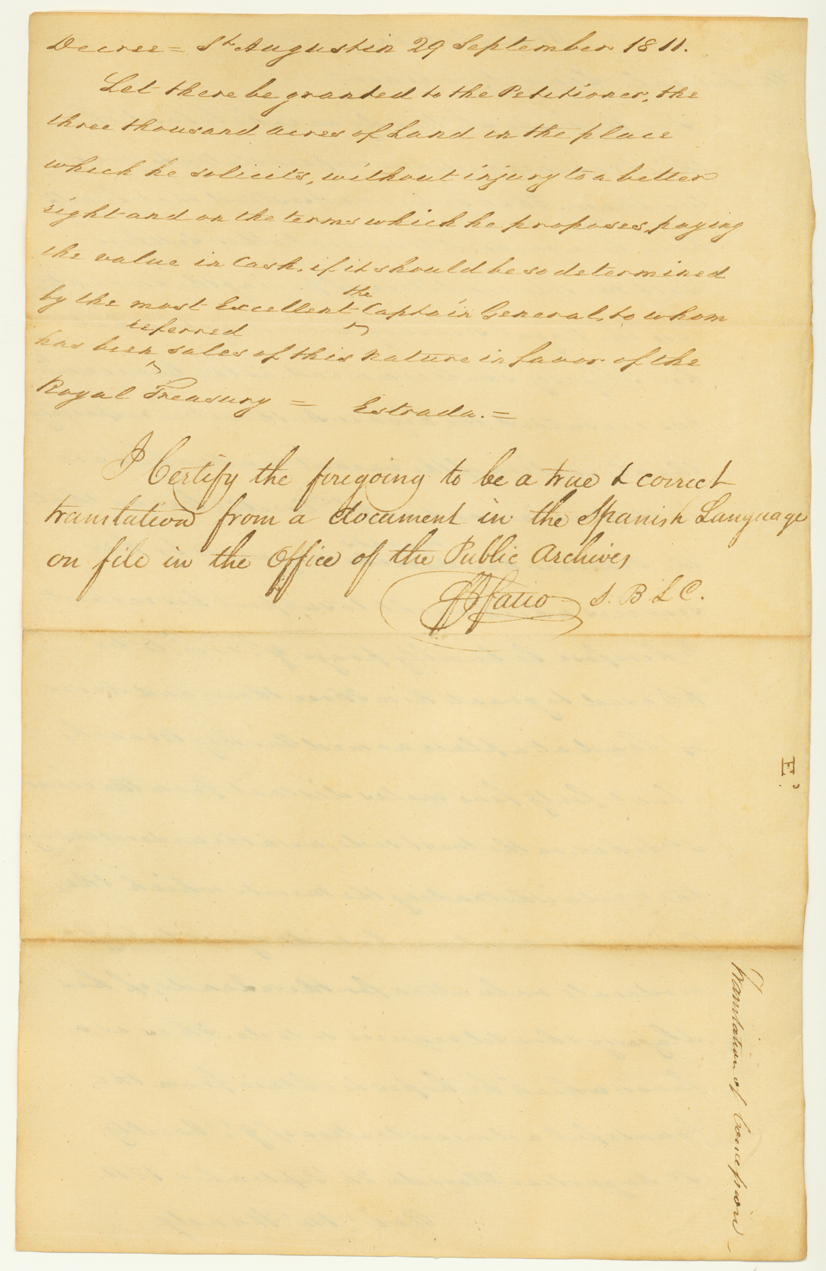 Decree = St Augustin 29 September 1811.
Let there be granted to the Petitioner, the
three thousand acres of Land in the place
which he solicits, without injury to a better
right and on the terms which he proposes, paying
the value in Cash, if it should be so determined
by the most Excellent the Captain General, to whom
has been referred sales of this nature in favor of the
Royal Treasury = Estrada. =
I Certify the foregoing to be a true & correct
translation from a document in the Spanish Language
on file in the Office of the Public Archives
F J Fatio S. B L C.
E.
Translation of Concession